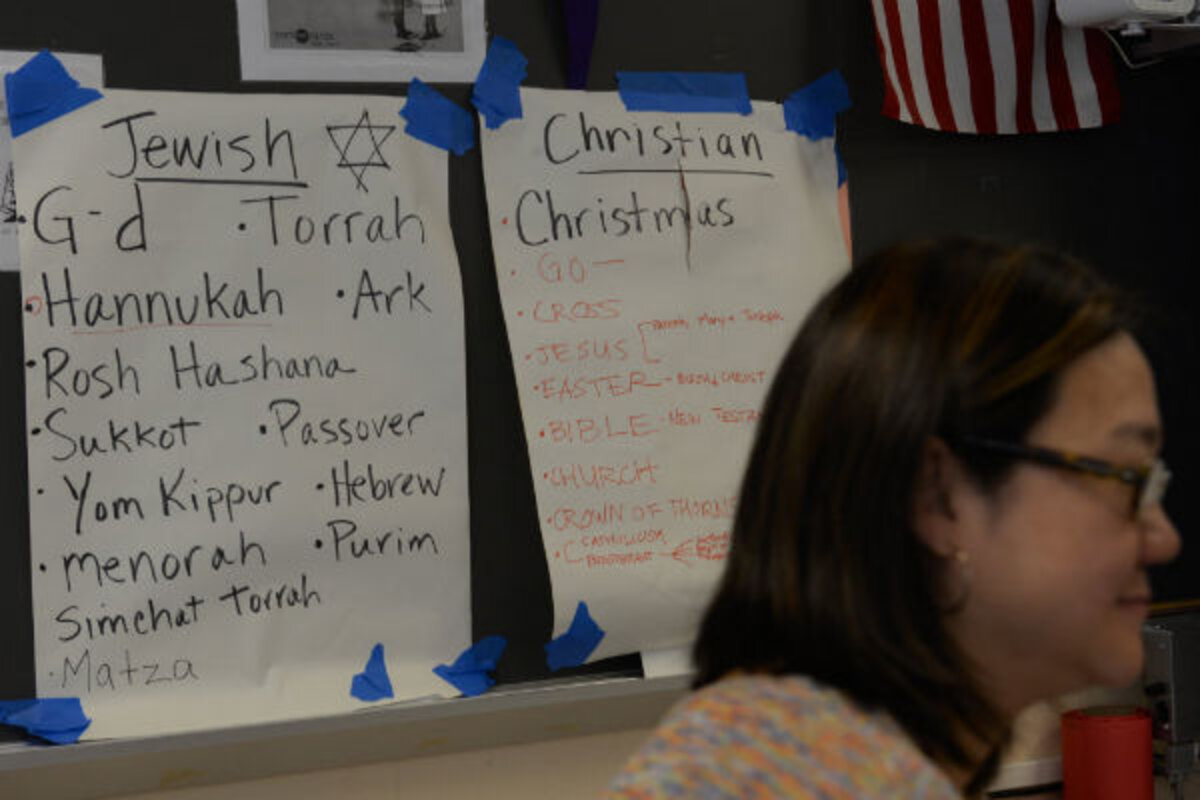 Jewish
G-d • Torrah
• Hannukah • Ark
• Rosh Hashana
• Sukkot • Passover
• Yom Kippur • Hebrew
• menorah • Purim
Simchat Torrah
• Matza
Christian
• Christmas
• GO—
• CROSS
• JESUS Mary + Joseph
• EASTER - CHRIST
• BIBLE - NEW
• CHURCH
• CROWN OF THORNS
• CATHOLICISM
PROTESTANT